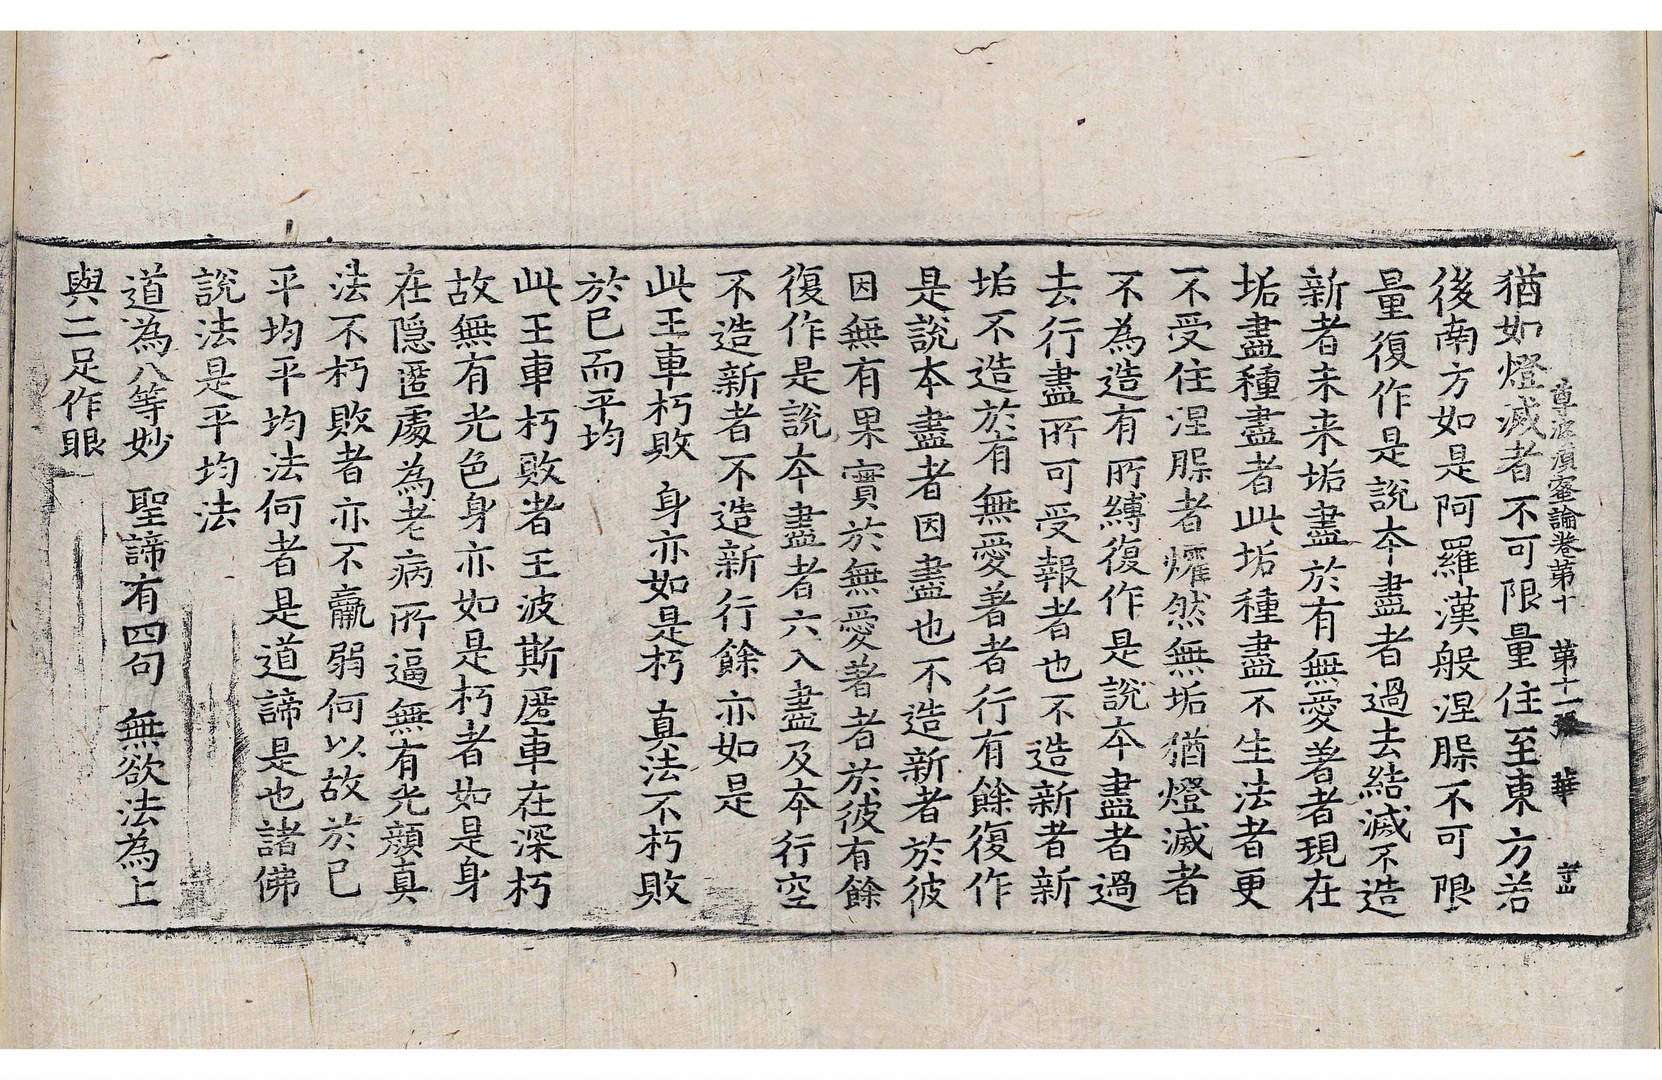 尊婆須蜜論卷第十　第十一張　華
猶如燈滅者不可限量住至東方若
後南方如是阿羅漢般涅脲不可限
量復作是說本盡者過去結滅不造
新者未来垢盡於有無愛著者現在
垢盡種盡者此垢種盡不生法者更
不受住涅脲者爗然無垢猶燈滅者
不為造有所縛復作是說本盡者過
去行盡所可受報者也不造新者新
垢不造於有無愛著者行有餘復作
是說本盡者因盡也不造新者於彼
因無有果實於無愛著者於彼有餘
復作是說本盡者六入盡及本行空
不造新者不造新行餘亦如是
此王車朽敗　身亦如是朽　真法不朽敗
於已而平均
此王車朽敗者王波斯匿車在深朽
故無有光色身亦如是朽者如是身
在隱匿處為老病所逼無有光顏真
法不朽敗者亦不羸弱何以故於已
平均平均法何者是道諦是也諸佛
說法是平均法
道為八等妙　聖諦有四句　無欲法為上
與二足作眼